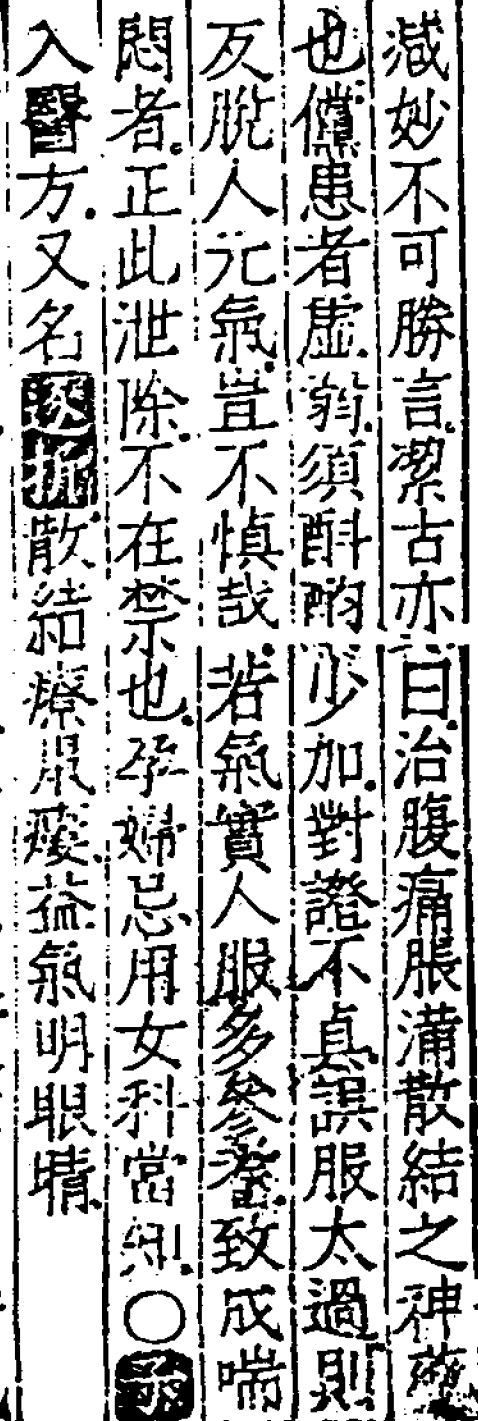 減妙不可勝言潔古亦曰治腹痛脹滿散結之神藥
也儻患者虛弱須斟酌少加對證不真誤服太過則
反脫人元氣豈不慎哉若氣實人服多參耆致成喘
悶者正此泄除不在禁也孕婦忌用女科當知○
入醫方又名逐折散結療鼠瘻益氣明眼睛